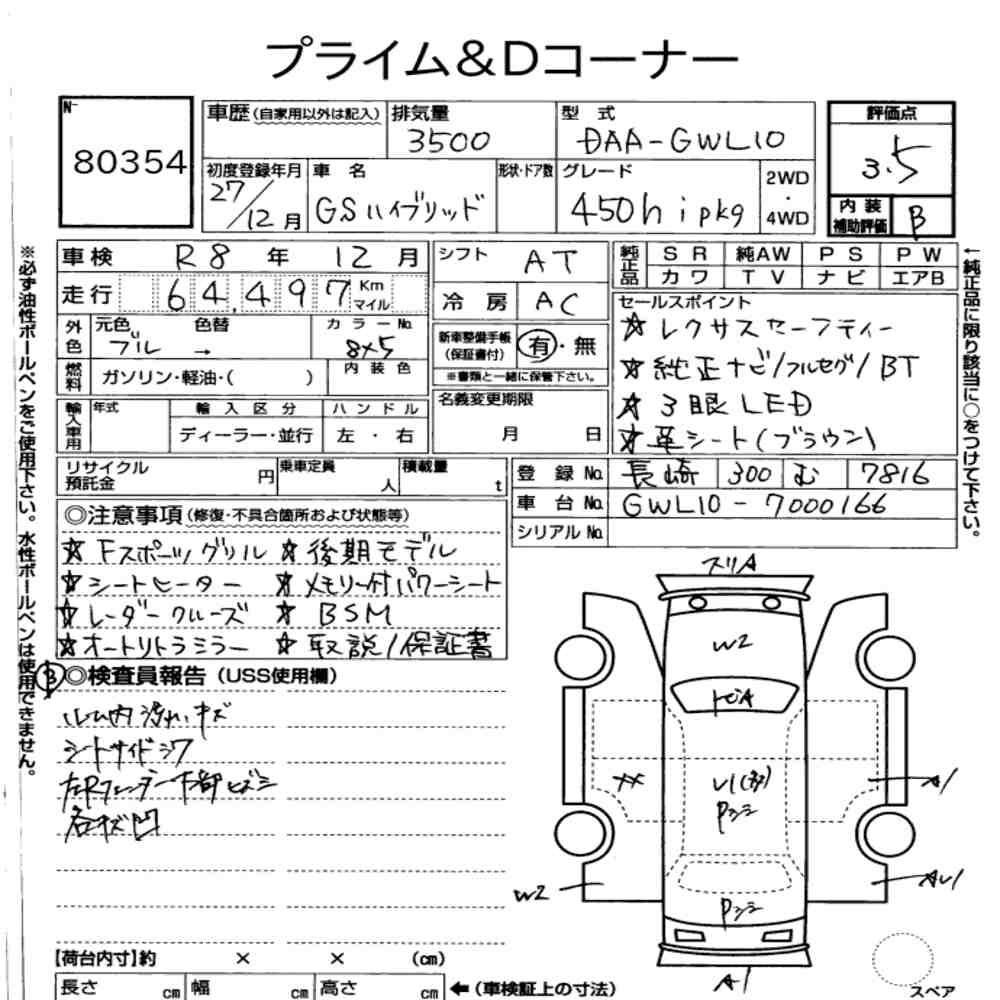 プライム&Dコーナー
No.
80354
車歴(自家用以外は記入)
排気量
3500
型 式
DAA-GWL10
評価点
3.5
初度登録年月
27/12月
車 名
GSハイブリッド
形状・ドア数
グレード
450h i pkg
2WD
・
4WD
内 装
補助評価
B
車検 R8 年 12 月
シフト AT
純正品
SR 純AW PS PW
カワ TV ナビ エアB
走行 64,497 Km マイル
冷 房 AC
セールスポイント
☆レクサスセーフティー
☆純正ナビ/フルセグ/BT
☆3眼LED
☆革シート(ブラウン)
外色
元色 色替
ブルー →
カラーNo.
8x5
新車整備手帳
(保証書付)
有・無
※書類と一緒に保管下さい。
燃料 ガソリン・軽油・( )
内 装 色
名義変更期限
月 日
輸入車用
年式
輸 入 区 分
ディーラー・並行
ハ ン ド ル
左 ・ 右
リサイクル
預託金 円
乗車定員 人
積載量 t
登 録 No. 長崎 300 む 7816
車 台 No. GWL10-7000166
シリアル No.
◎注意事項(修復・不具合箇所および状態等)
☆Fスポーツグリル ☆後期モデル
☆シートヒーター ☆メモリー付パワーシート
☆レーダークルーズ ☆BSM
☆オートリトラミラー ☆取説/保証書
B ◎検査員報告(USS使用欄)
ルーム内汚れキズ
シートサイドシワ
左Rフェンダー下部ヒズミ
各キズ凹
スリA
W2
トビA
A1
W2
AU1
A1
スペア
【荷台内寸】約 × × (cm)
長さ cm 幅 cm 高さ cm ←(車検証上の寸法)
※必ず油性ボールペンをご使用下さい。水性ボールペンは使用できません。
←純正品に限り該当に○をつけて下さい。